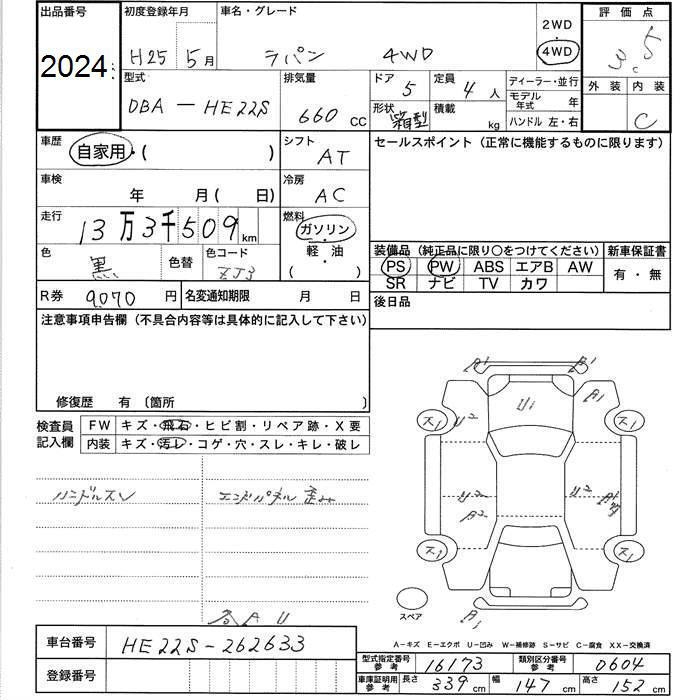 出品番号 初度登録年月 車名・グレード 2WD 評価点
2024 H25 5月 ラパン 4WD 4WD 3.5
外装 内装
C
型式 排気量 ドア 定員 ディーラー・並行
DBA-HE22S 660 CC 5 4人 モデル年式 年
形状 積載 ハンドル 左・右
箱型 kg
車歴 自家用・( ) シフト セールスポイント(正常に機能するものに限ります)
AT
車検 冷房
年 月( 日) AC
走行 13万3千509km 燃料
ガソリン・
軽・油
( )
色 色替 色コード
黒 ZJ3
装備品(純正品に限り○をつけてください) 新車保証書
PS PW ABS エアB AW 有・無
SR ナビ TV カワ
R券 9070円 名変通知期限 月 日 後日品
注意事項申告欄(不具合内容等は具体的に記入して下さい)
修復歴 有 〔箇所 〕
検査員記入欄 FW キズ・飛石・ヒビ割・リペア跡・X要
内装 キズ・汚レ・コゲ・穴・スレ・キレ・破レ
ハンドルスレ エンドパネル歪み
各AU
A1 A1
A1
U1
ス1 U2 ス1
U2 U2
A2
ス1 ス1
スペア A1
A-キズ E-エクボ U-凹み W-補修跡 S-サビ C-腐食 XX-交換済
車台番号 HE22S-262633
登録番号
型式指定番号参考 16173 類別区分番号参考 0604
車庫証明用参考 長さ 339cm 幅 147cm 高さ 152cm